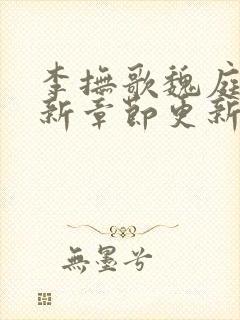 李撫歌魏庭
新章節更新
無墨兮